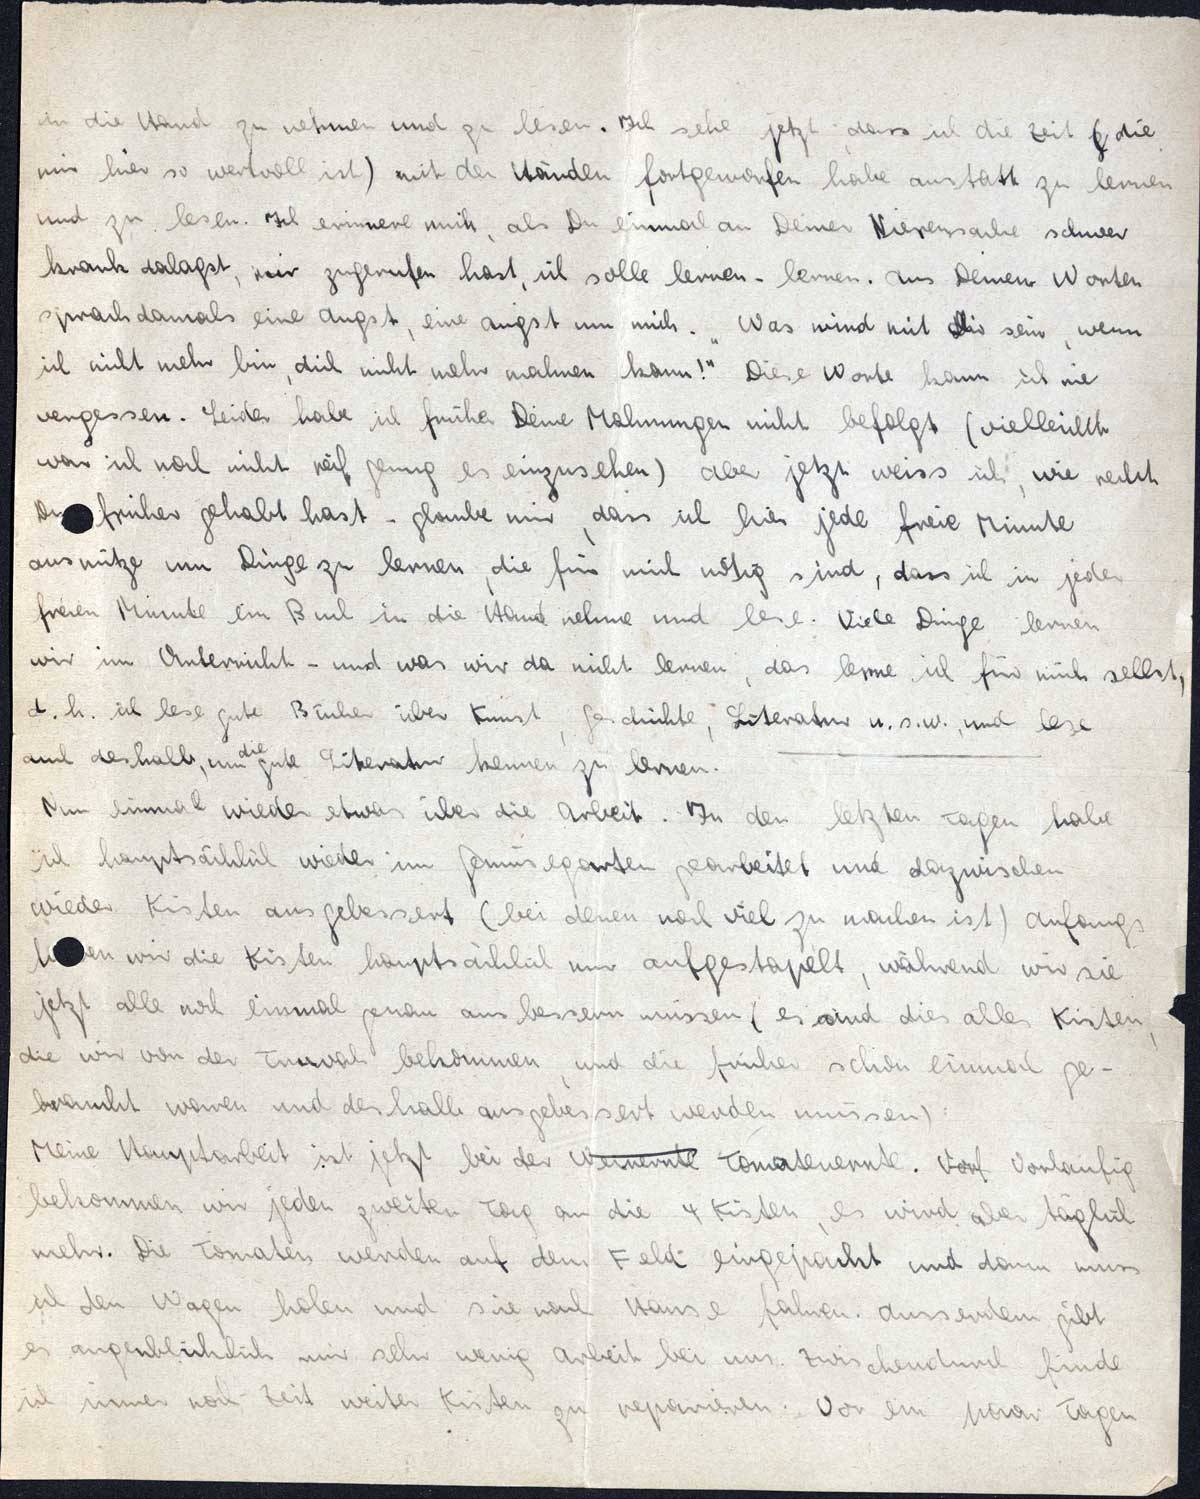 in die Hand zu nehmen und zu lesen. Ich sehe jetzt, dass ich die Zeit (die
mir hier so wertvoll ist) mit den Händen fortgeworfen habe anstatt zu lernen
und zu lesen. Ich erinnere mich, als Du einmal an Deiner Nierensache schwer
krank dalagst, mir zugerufen hast, ich solle lernen - lernen. Aus Deinen Worten
sprach damals eine Angst, eine Angst um mich. „Was wird mit Dir sein, wenn
ich nicht mehr bin, dich nicht mehr mahnen kann!" Diese Worte kann ich nie
vergessen. Leider habe ich früher Deine Mahnungen nicht befolgt (vielleicht
war ich noch nicht reif genug es einzusehen) aber jetzt weiss ich, wie recht
Du früher gehabt hast - glaube mir, dass ich hier jede freie Minute
ausnütze um Dinge zu lernen, die für mich nötig sind, dass ich in jeder
freien Minute ein Buch in die Hand nehme und lese. Viele Dinge lernen
wir im Unterricht - und was wir da nicht lernen, das lerne ich für mich selbst,
d. h. ich lese gute Bücher über Kunst, Geschichte, Literatur u.s.w., und lese
auch deshalb, um die gute Literatur kennen zu lernen.
Nun einmal wieder etwas über die Arbeit. In den letzten Tagen habe
ich hauptsächlich wieder im Gemüsegarten gearbeitet und dazwischen
wieder Kisten ausgebessert (bei denen noch viel zu machen ist) Anfangs
haben wir die Kisten hauptsächlich nur aufgestapelt, während wir sie
jetzt alle noch einmal genau ausbessern müssen (es sind dies alles Kisten,
die wir von der Tnuvah bekommen, und die früher schon einmal ge-
braucht waren und deshalb ausgebessert werden müssen).
Meine Hauptarbeit ist jetzt bei der Weinernte Tomatenernte. Vorl Vorläufig
bekommen wir jeden zweiten Tag an die 4 Kisten, es wird aber täglich
mehr. Die Tomaten werden auf dem Feld eingepackt und dann muss
ich den Wagen holen und sie nach Hause fahren. Ausserdem gibt
es augenblicklich nur sehr wenig Arbeit bei uns. Zwischendurch finde
ich immer noch Zeit weiter Kisten zu reparieren. Vor ein paar Tagen